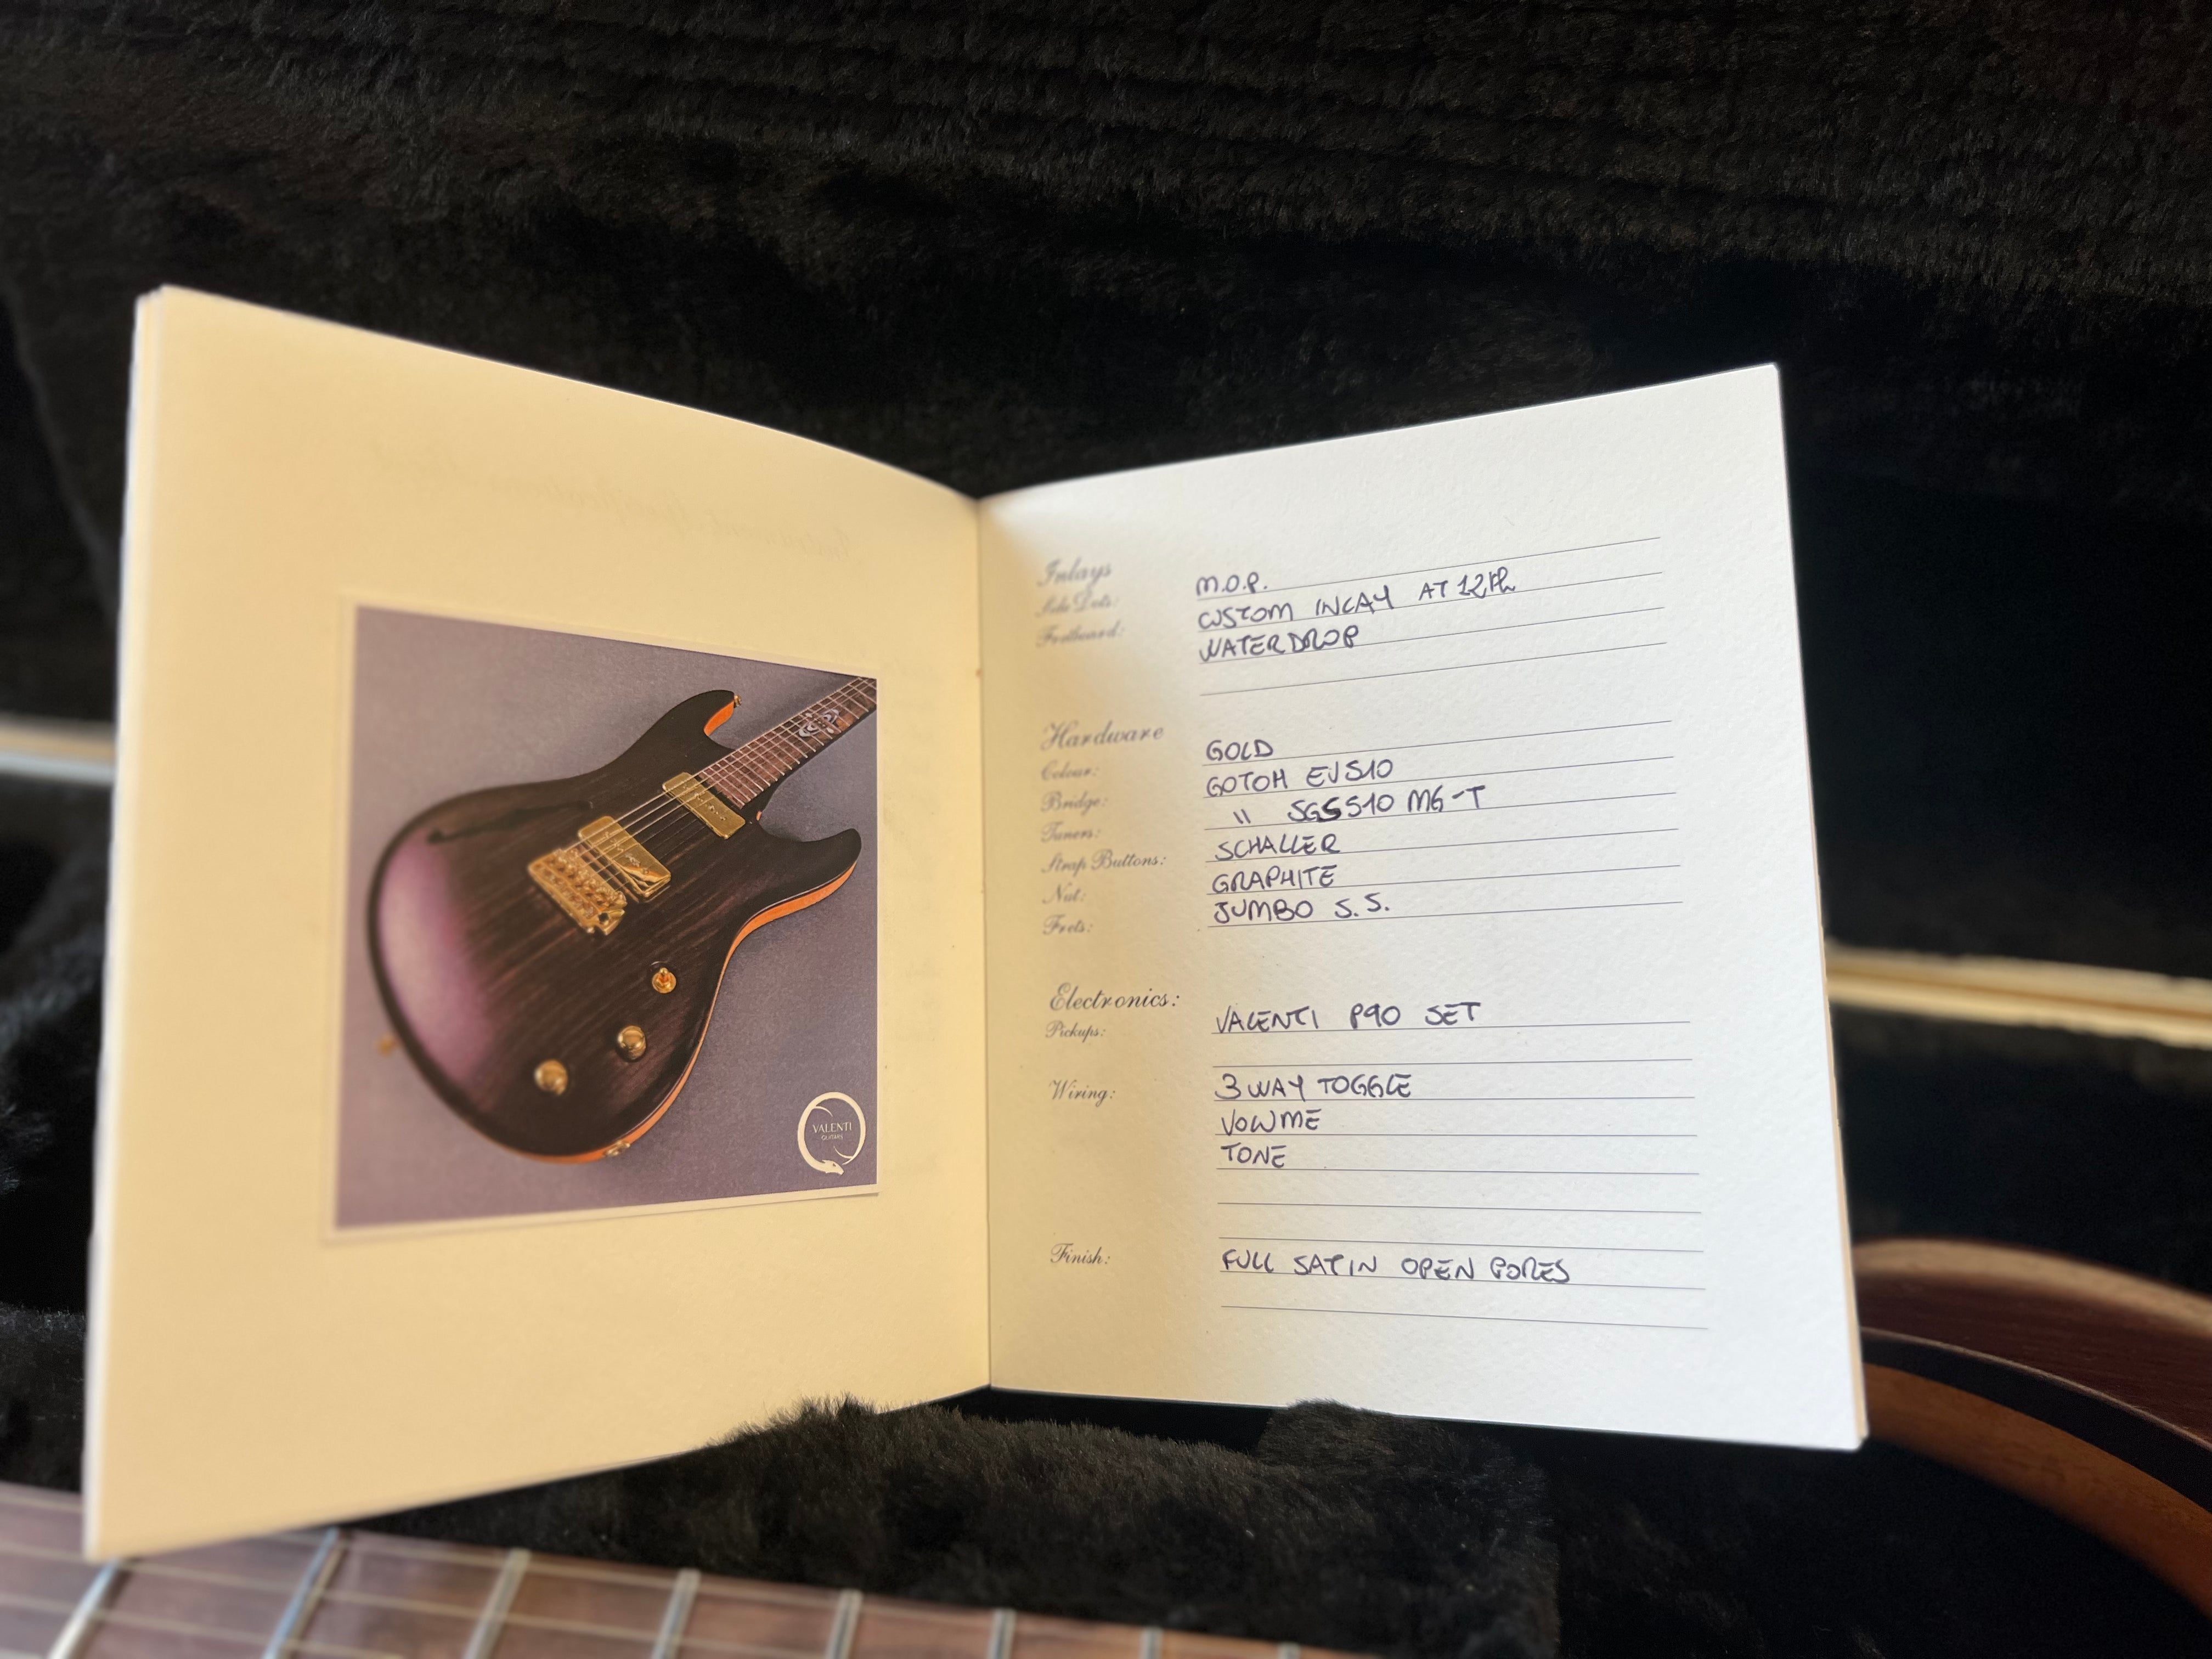 VALENTI
GUITARS
Inlays
Side Dots: M.O.P.
Fretboard: CUSTOM INLAY AT 12th
WATERDROP
Hardware
Colour: GOLD
Bridge: GOTOH EVS10
Tuners: " SGS510 MG-T
Strap Buttons: SCHALLER
Nut: GRAPHITE
Frets: JUMBO S.S.
Electronics:
Pickups: VALENTI P90 SET
Wiring: 3 WAY TOGGLE
VOLUME
TONE
Finish: FULL SATIN OPEN PORES